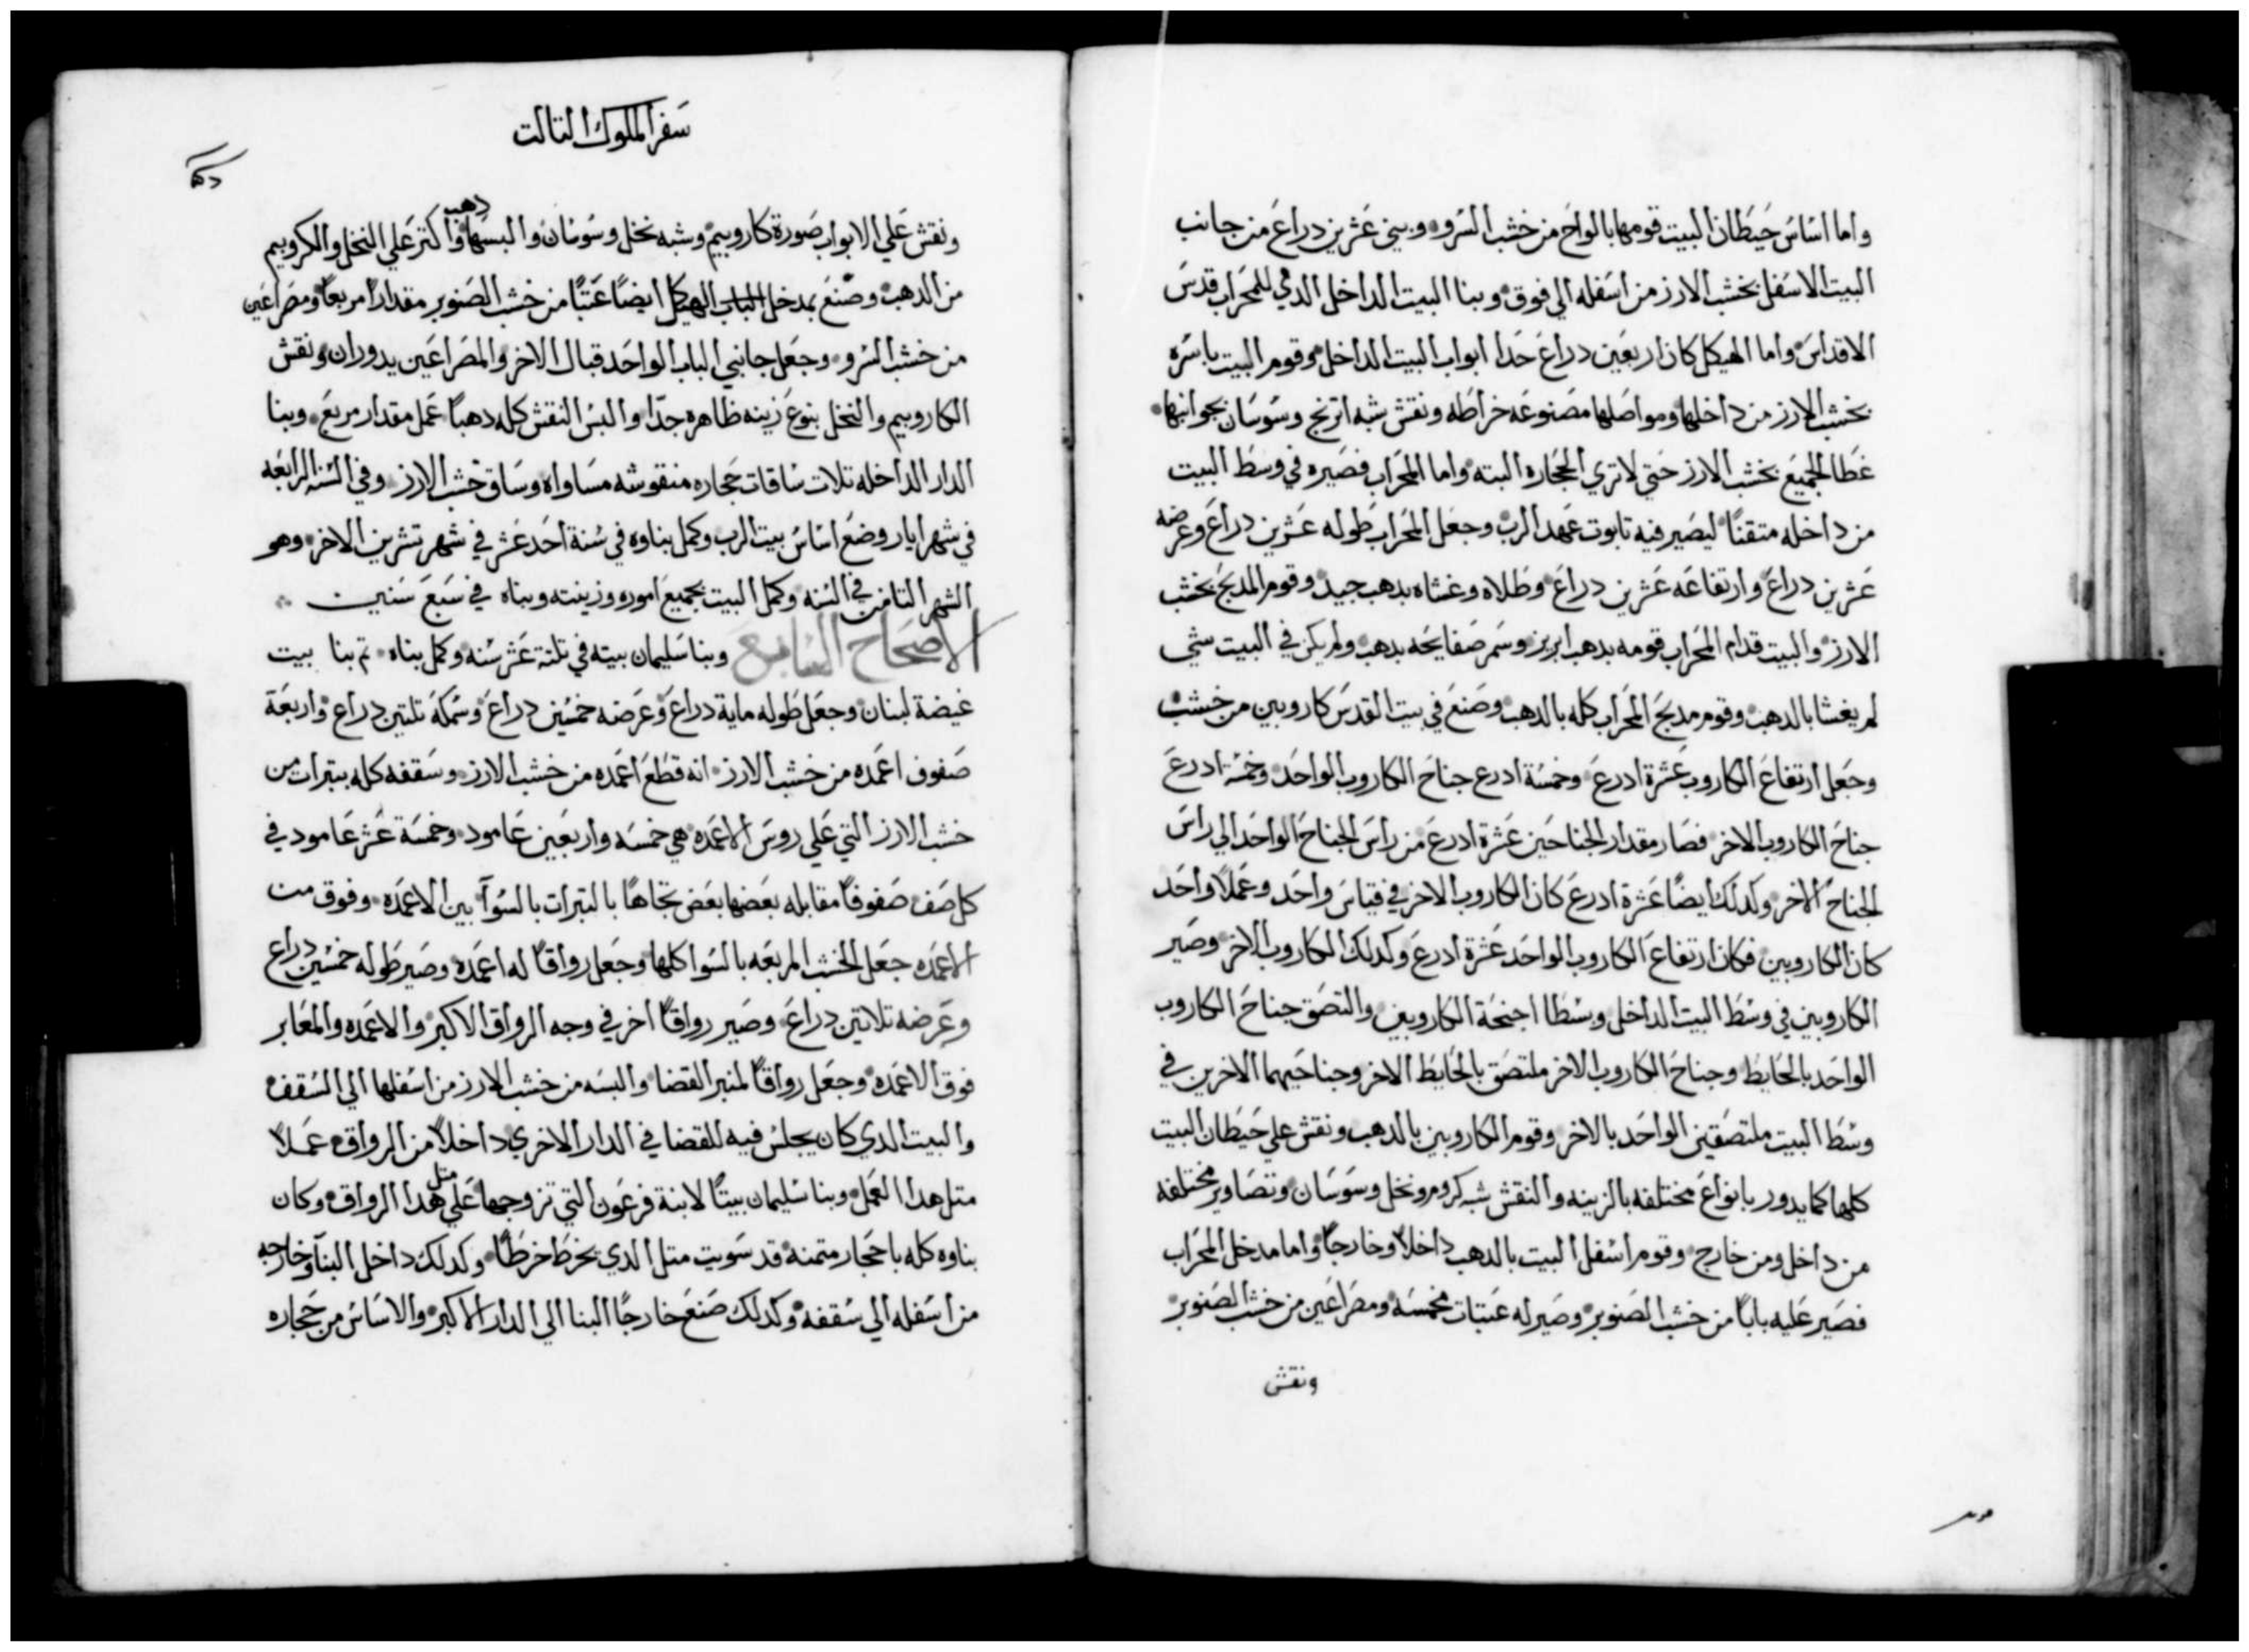 واما اساس حيطان البيت قومها بالواح من خشب السرو وبني عشرين دراع من جانب
البيت الاسفل بخشب الارز من اسفله الي فوق وبنا البيت الداخل الدي للمحراب قدس
الاقداس واما الهيكل كان اربعين دراع حدا ابواب البيت الداخل وقوم البيت باسره
بخشب الارز من داخلها ومواصلها مصنوعه خراطه ونقش شبه اترنج وسوسان بجوانبها
غطا الجميع بخشب الارز حتي لا تري الحجاره البته واما المحراب فصيره في وسط البيت
من داخله متقنًا ليصير فيه تابوت عهد الرب وجعل المحراب طوله عشرين دراع وعرضه
عشرين دراع وارتفاعه عشرين دراع وطلاه وغشاه بدهب جيد وقوم المدبح بخشب
الارز والبيت قدام المحراب قومه بدهب ابريز وسمر صفايحه بدهب ولم يكن في البيت شي
لم يغشا بالدهب وقوم مدبح المحراب كله بالدهب وصنع في بيت القدس كاروبين من خشب
وجعل ارتفاع الكاروب عشرة ادرع وخمسة ادرع جناح الكاروب الواحد وخمسة ادرع
جناح الكاروب الاخر فصار مقدار الجناحين عشرة ادرع من راس الجناح الواحد الي راس
الجناح الاخر وكدلك ايضًا عشرة ادرع كان الكاروب الاخر في قياس واحد وعملاً واحد
كان الكاروبين فكان ارتفاع الكاروب الواحد عشرة ادرع وكدلك الكاروب الاخر وصير
الكاروبين في وسط البيت الداخل وبسطا اجنحة الكاروبين والتصق جناح الكاروب
الواحد بالحايط وجناح الكاروب الاخر ملتصق بالحايط الاخر وجناحيهما الاخرين في
وسط البيت ملتصقين الواحد بالاخر وقوم الكاروبين بالدهب ونقش علي حيطان البيت
كلها كما يدور بانواع مختلفه بالزينه والنقش شبه كروم ونخل وسوسان وتصاوير مختلفه
من داخل ومن خارج وقوم اسفل البيت بالدهب داخلاً وخارجًا واما مدخل المحراب
فصير عليه بابًا من خشب الصنوبر وصير له عتبات مخمسه ومصراعين من خشب الصنوبر
ونقش
سفر الملوك التالت
ونقش علي الابواب صورة كاروبيم وشبه نخل وسوسان والبسها دهب واكتر علي النخل والكروبيم
من الدهب وصنع بمدخل الباب الهيكل ايضًا عتبًا من خشب الصنوبر مقدارًا مربعًا ومصراعين
من خشب السرو وجعل جانبي الباب الواحد قبال الاخر والمصراعين يدوران ونقش
الكاروبيم والنخل بنوع زينه ظاهره جدًا والبس النقش كله دهبًا عمل مقدار مربع وبنا
الدار الداخله تلات ساقات حجاره منقوشه مساواه وساق خشب الارز وفي السنه الرابعه
في شهر ايار وضع اساس بيت الرب وكمل بناوه في سنة احد عشر في شهر تشرين الاخر وهو
الشهر التامن في السنه وكمل البيت بجميع اموره وزينته وبناه في سبع سنين
الاصحاح السابع وبنا سليمان بيته في تلتة عشر سنه وكمل بناه تم بنا بيت
غيضة لبنان وجعل طوله ماية دراع وعرضه خمسين دراع وسمكه تلتين دراع واربعة
صفوف اعمده من خشب الارز انه قطع اعمده من خشب الارز وسقفه كله بتبرات من
خشب الارز التي علي روس الاعمده هي خمسه واربعين عامود وخمسة عشر عامود في
كل صف صفوفًا مقابله بعضها بعض تجاهًا بالتبرات بالسوآ بين الاعمده وفوق من
الاعمده جعل الخشب المربعه بالسوا كلها وجعل رواقًا له اعمده وصير طوله خمسين دراع
وعرضه تلاتين دراع وصير رواقًا اخر في وجه الرواق الاكبر والاعمده والمعابر
فوق الاعمده وجعل رواقًا لمنبر القضا والبسه من خشب الارز من اسفلها الي السقف
والبيت الدي كان يجلس فيه للقضا في الدار الاخري داخلاً من الرواق عملاً
متل هدا العمل وبنا سليمان بيتًا لابنة فرعون التي تزوجها علي متل هدا الرواق وكان
بناوه كله باحجار متمنة قد سويت متل الدي يخرط خرطًا وكدلك داخل البنآ وخارجه
من اسفله الي سقفه وكدلك صنع خارجًا البنا الي الدار الاكبر والاساس من حجاره